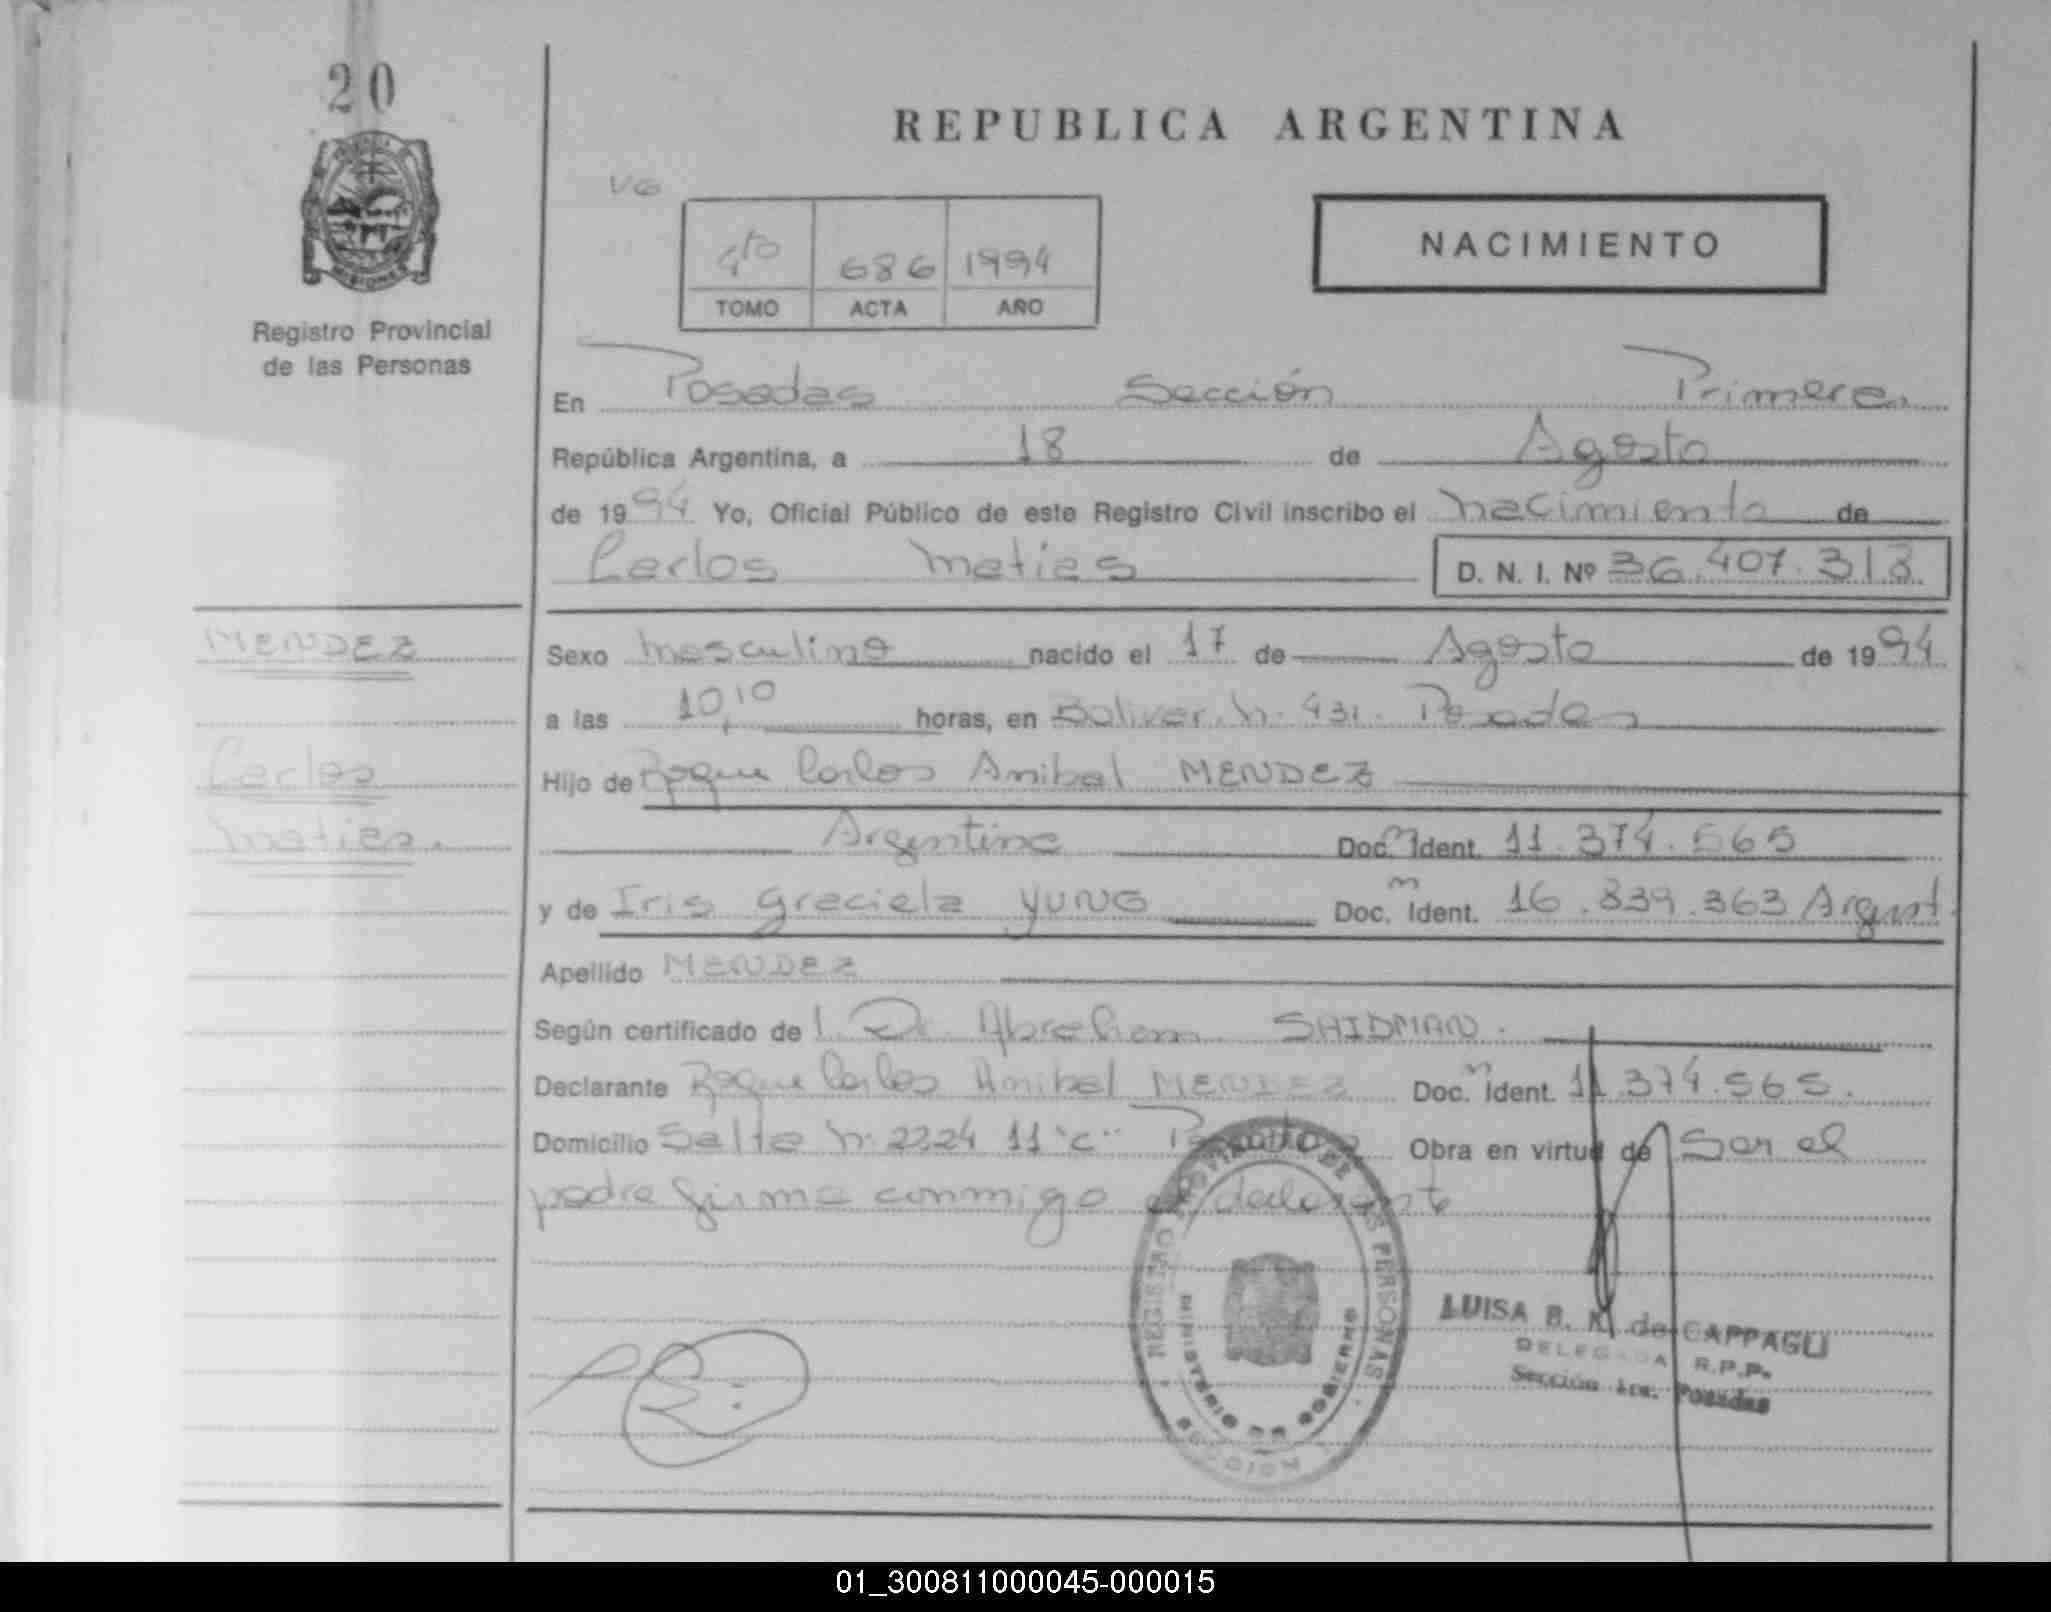 20
REPUBLICA ARGENTINA
VG
NACIMIENTO
4to 686 1994
TOMO ACTA AÑO
MISIONES
Registro Provincial
de las Personas
En Posadas Sección Primera
República Argentina, a 18 de Agosto
de 1994 Yo, Oficial Público de este Registro Civil inscribo el nacimiento de
Carlos Matias D. N. I. Nº 36.407.313
MENDEZ
Carlos
Matias.
Sexo masculino nacido el 17 de Agosto de 1994
a las 10,10 horas, en Bolivar. n. 431. Posadas
Hijo de Roque Carlos Anibal MENDEZ
Argentino Doc. m Ident. 11.374.565
y de Iris Graciela YUNG Doc. m Ident. 16.839.363 Argent.
Apellido MENDEZ
Según certificado de l. Dr. Abraham SAIDMAN.
Declarante Roque Carlos Anibal MENDEZ Doc. m Ident. 11.374.565.
Domicilio Salta n. 2224 11 "c" Posadas Obra en virtud de Ser el
padre firma conmigo el declarante
REGISTRO PROVINCIAL DE LAS PERSONAS
MINISTERIO DE GOBIERNO
LUISA B. N. de CAPPAGLI
DELEGADA R.P.P.
Sección 1ra. Posadas
01_300811000045-000015